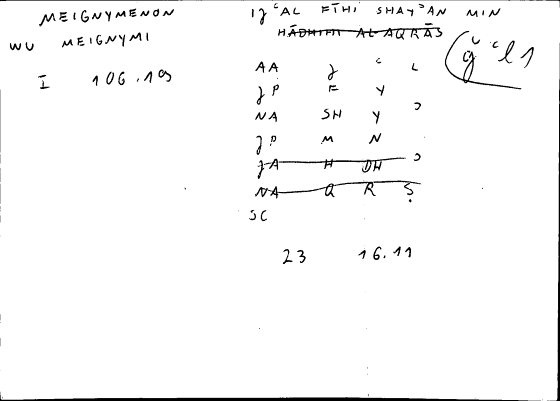 MEIGNYMENON
WU MEIGNYMI
I 106.19
IǧʿAL FĪHI SHAYʾAN MIN
HĀDHIHI AL-AQRĀṢ
ǧʿl1
AA ǧ ʿ L
ǧP F Y
NA SH Y ʾ
ǧP M N
ǧA H DH ʾ
NA Q R Ṣ
SC
23 16.11